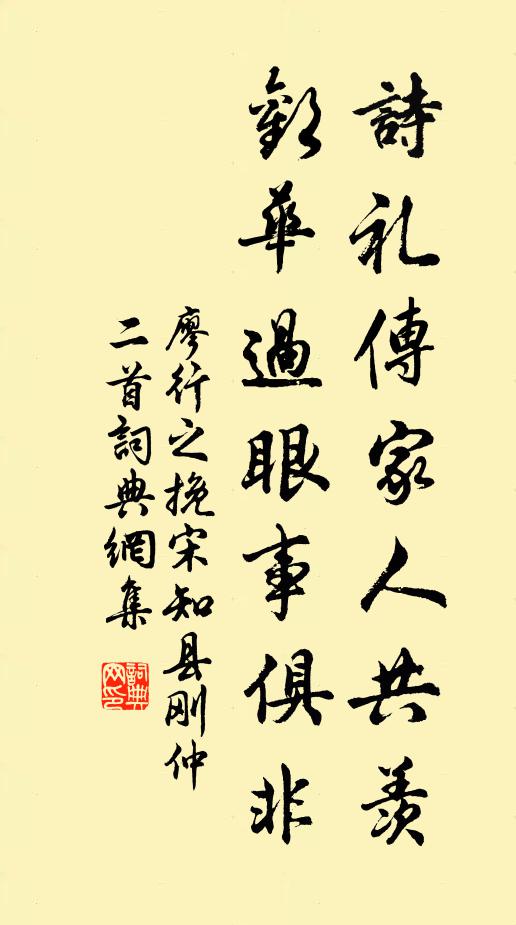 詩礼傳家人共羨
歡華過眼事俱非
廖行之挽宋知县刚仲
二首詞典網集
詞典
网印